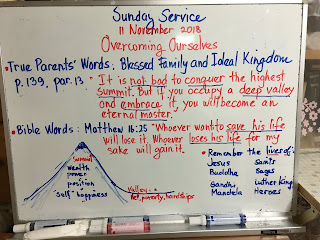 Sunday Service
11 November 2018
Overcoming Ourselves
• True Parents' Words: Blessed Family and Ideal Kingdom
p. 139, par. 13 "It is not bad to conquer the highest
summit. But if you occupy a deep valley
and embrace it, you will become an
eternal master.
• Bible Words: Matthew 16:25 "Whoever want to save his life
will lose it. Whoever
loses his life for my
sake will gain it.
Summit
wealth
power
position
"self" happiness
Valley:
poverty, hardships
• Remember the lives of:
Jesus Saints
Buddha Sages
Gandhi Luther King
Mandela Heroes